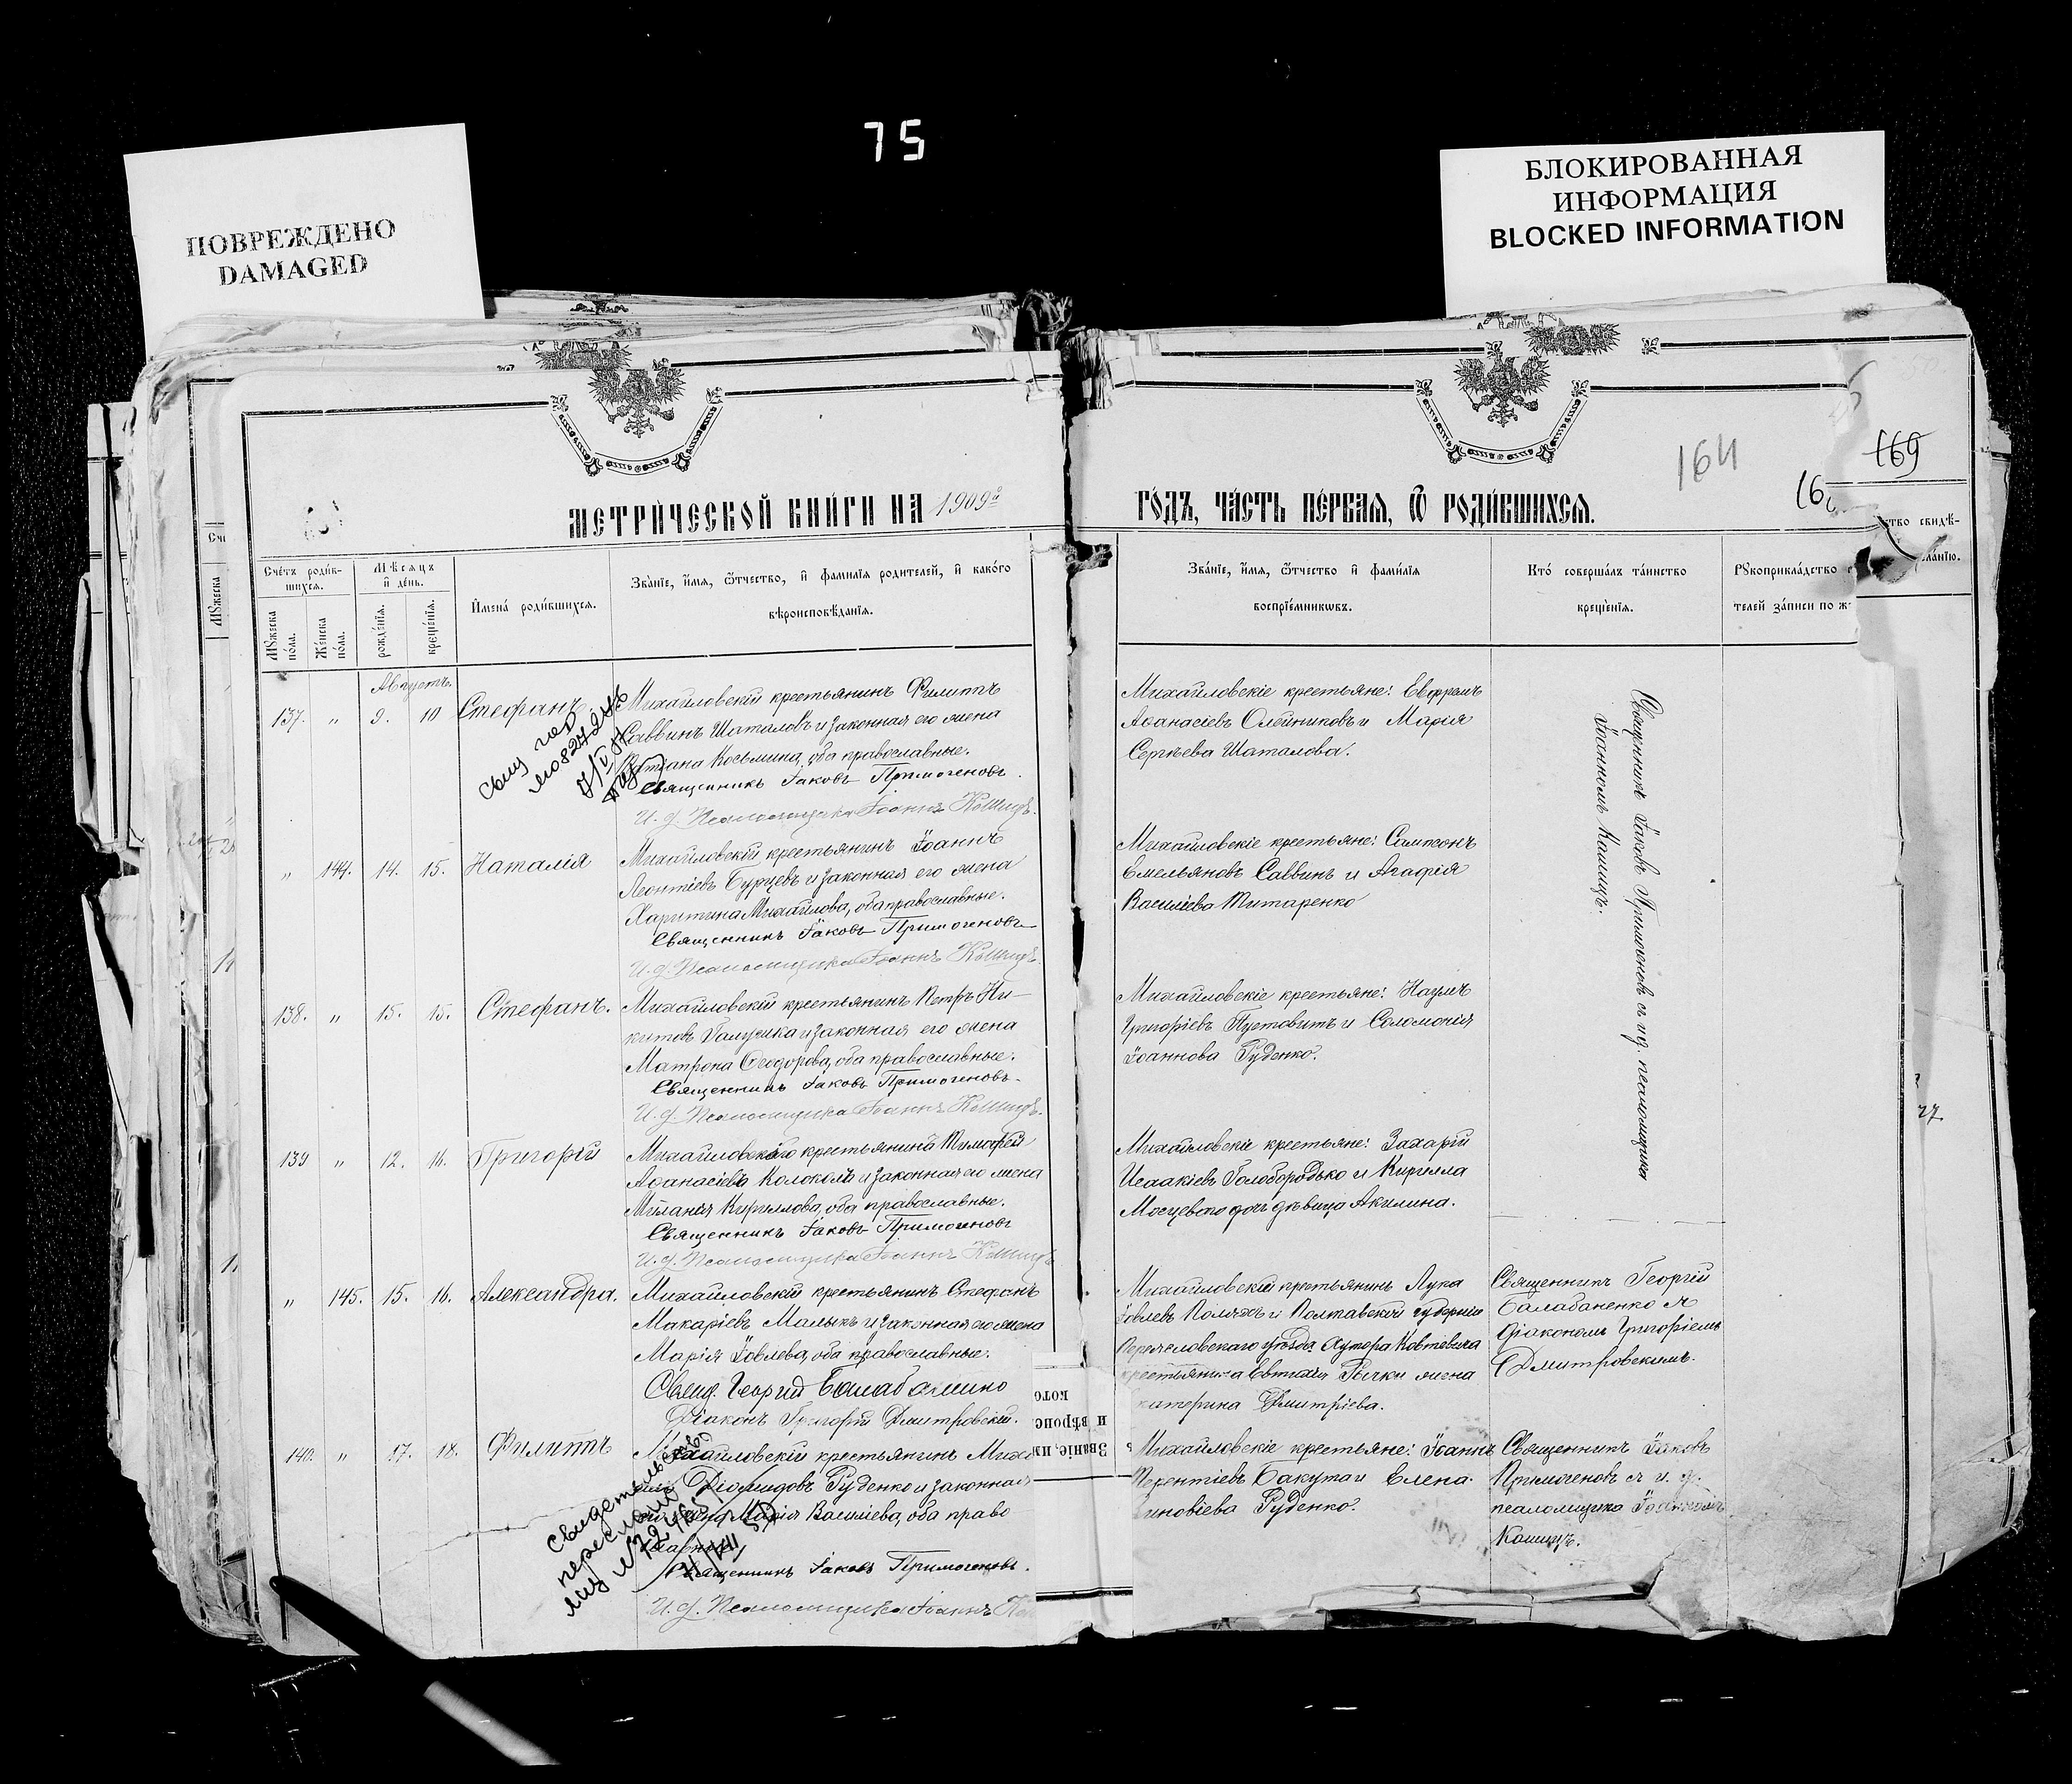 75
ПОВРЕЖДЕНО
DAMAGED
БЛОКИРОВАННАЯ
ИНФОРМАЦИЯ
BLOCKED INFORMATION
164
169
МЕТРИ́ЧЕСКОЙ КНИ́ГИ НА 1909й
ГО́ДЪ, ЧА́СТЬ ПЕ́РВАЯ, Ѡ РОДИ́ВШИХСЯ.
Сче́тъ роди́в-
шихся.
Мѣсяцъ
и́ де́нь.
Мꙋжеска
по́ла.
Же́нска
по́ла.
рожде́нїя.
креще́нїя.
И́мена́ роди́вшихся.
Зва́нїе, и́мя, ѻ́тчество, и́ фами́лїя родителей, и́ како́го
вѣроисповѣ́данїя.
Зва́нїе, и́мя, ѻ́тчество и́ фами́лїя
воспрїе́мникѡвъ.
Кто́ соверша́лъ та́инство
креще́нїя.
Рꙋкоприкла́дство
телей за́писи по ж
ство свидѣ-
ла́нїю.
Августъ.
137. „ 9. 10 Стефанъ.
Михайловскій крестьянинъ Филиппъ
Саввинъ Шаталовъ и законная его жена
Татіана Косьмина, оба православные.
Священникъ Іаковъ Примогеновъ.
И. д. Псаломщика Іоаннъ Кошицъ.
Михайловскіе крестьяне: Евфремъ
Аѳанасіевъ Олейниковъ и Марія
Сергѣева Шаталова.
Священникъ Іаковъ Примогеновъ съ ид. псаломщика
Іоанномъ Кошицъ.
„ 144. 14. 15. Наталія
Михайловскій крестьянинъ Іоаннъ
Леонтіевъ Бурцевъ и законная его жена
Харитина Михайлова, оба православные.
Священникъ Іаковъ Примогеновъ
И. д. Псаломщика Іоаннъ Кошицъ.
Михайловскіе крестьяне: Сампсонъ
Емельяновъ Саввинъ и Агафія
Василіева Титаренко
138. „ 15. 15. Стефанъ.
Михайловскій крестьянинъ Петръ Ни-
китовъ Галушка и законная его жена
Матрона Ѳеодорова, оба православные.
Священникъ Іаковъ Примогеновъ.
И. д. Псаломщика Іоаннъ Кошицъ.
Михайловскіе крестьяне: Наумъ
Григоріевъ Пустовитъ и Соломонія
Іоаннова Руденко.
139 „ 12. 16. Григорій
Михайловскаго крестьянина Тимоѳей
Аѳанасіевъ Колоколъ и законная его жена
Миланія Кириллова, оба православные.
Священникъ Іаковъ Примогеновъ
И. д. Псаломщика Іоаннъ Кошицъ
Михайловскіе крестьяне: Захарій
Исаакіевъ Голобородько и Кирилла
дочь дѣвица Акилина.
„ 145. 15. 16. Александра.
Михайловскій крестьянинъ Стефанъ
Макаріевъ Малыкъ и законная его жена
Марія Іовлева, оба православные.
Свящ. Георгій Балабаненко
Діаконъ Григорій Дмитровскій.
Михайловскій крестьянинъ Лука
Іовлевъ Поляхъ и Полтавской губерніи
уѣзда хутора Ковтевича
жена
катерина Дмитріева.
Священникъ Георгій
Балабаненко съ
діакономъ Григоріемъ
Дмитровскимъ.
140. „ 17. 18. Филиппъ
Михайловскій крестьянинъ Миха
Діомидовъ Руденко и законная
жена Марія Василіева, оба право
славные
Священникъ Іаковъ Примогеновъ.
И. д. Псаломщика Іоаннъ
Михайловскіе крестьяне: Іоаннъ
Терентіевъ Бакута и Елена
Зиновіева Руденко.
Священникъ Іаковъ
Примогеновъ съ и. д.
псаломщика Іоанномъ
Кошицъ.
Свидетельство
переслано